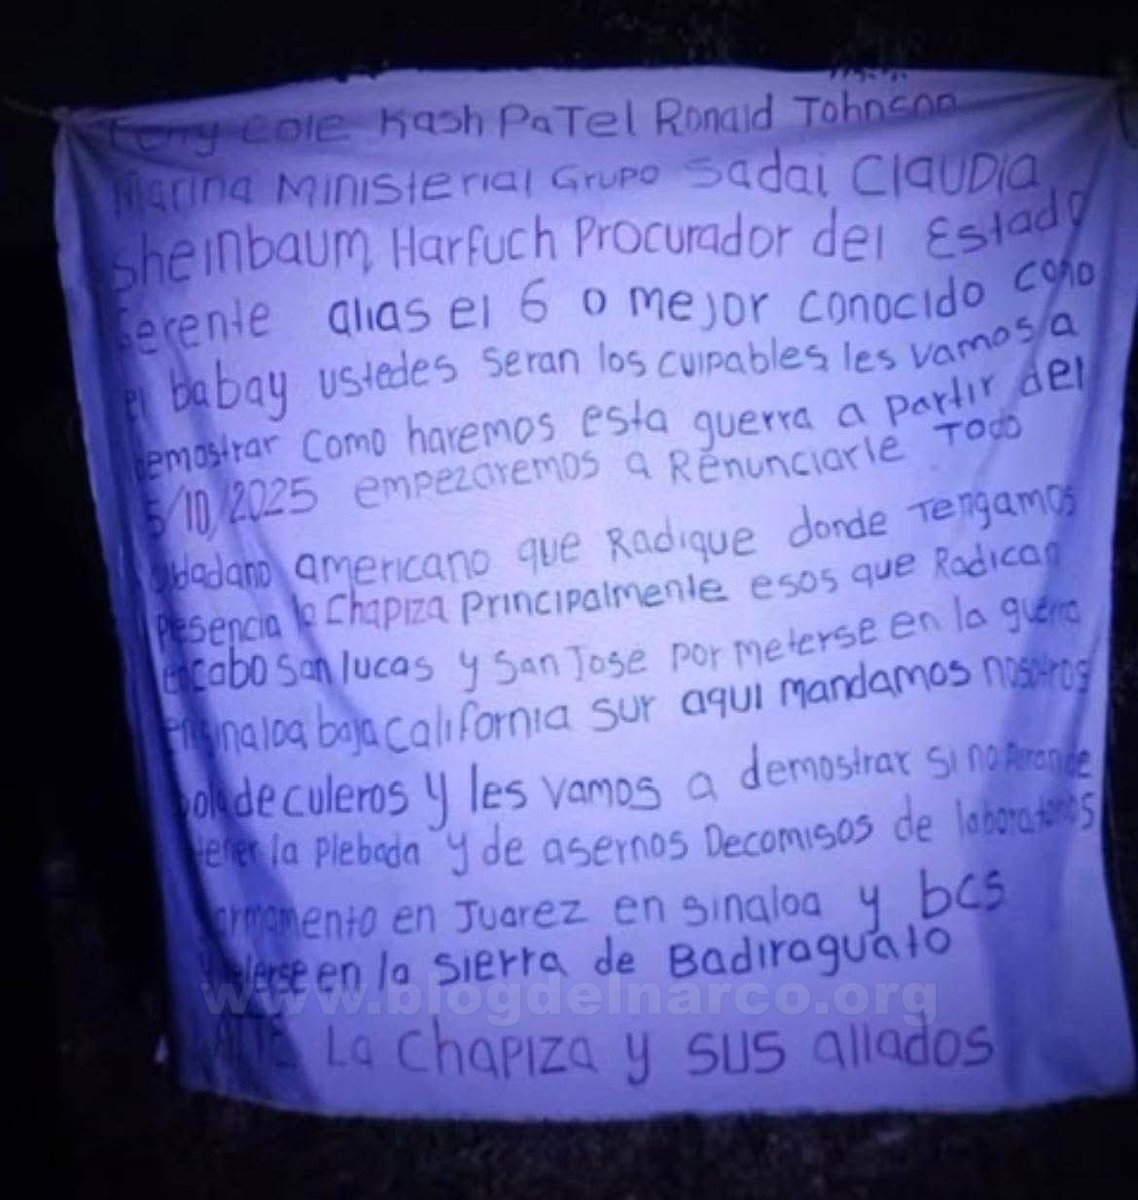 Terry Cole Kash PaTel Ronald Johnson
Marina Ministerial Grupo Sadai Claudia
Sheinbaum Harfuch Procurador del Estado
Gerente alias el 6 o mejor conocido como
el babay ustedes seran los culpables les vamos a
demostrar como haremos esta guerra a partir del
5/10/2025 empezaremos a Renunciarle Todo
americano que Radique donde Tengamos
Presencia la Chapiza Principalmente esos que Radican
en cabo san lucas y san Jose por meterse en la guerra
en sinaloa baja california sur aqui mandamos nosotros
bola de culeros y les vamos a demostrar si no
la plebada y de asernos Decomisos de laboratorios
armamento en Juarez en sinaloa y bcs
en la sierra de Badiraguato
www.blogdelnarco.org
ATTE La Chapiza y sus aliados